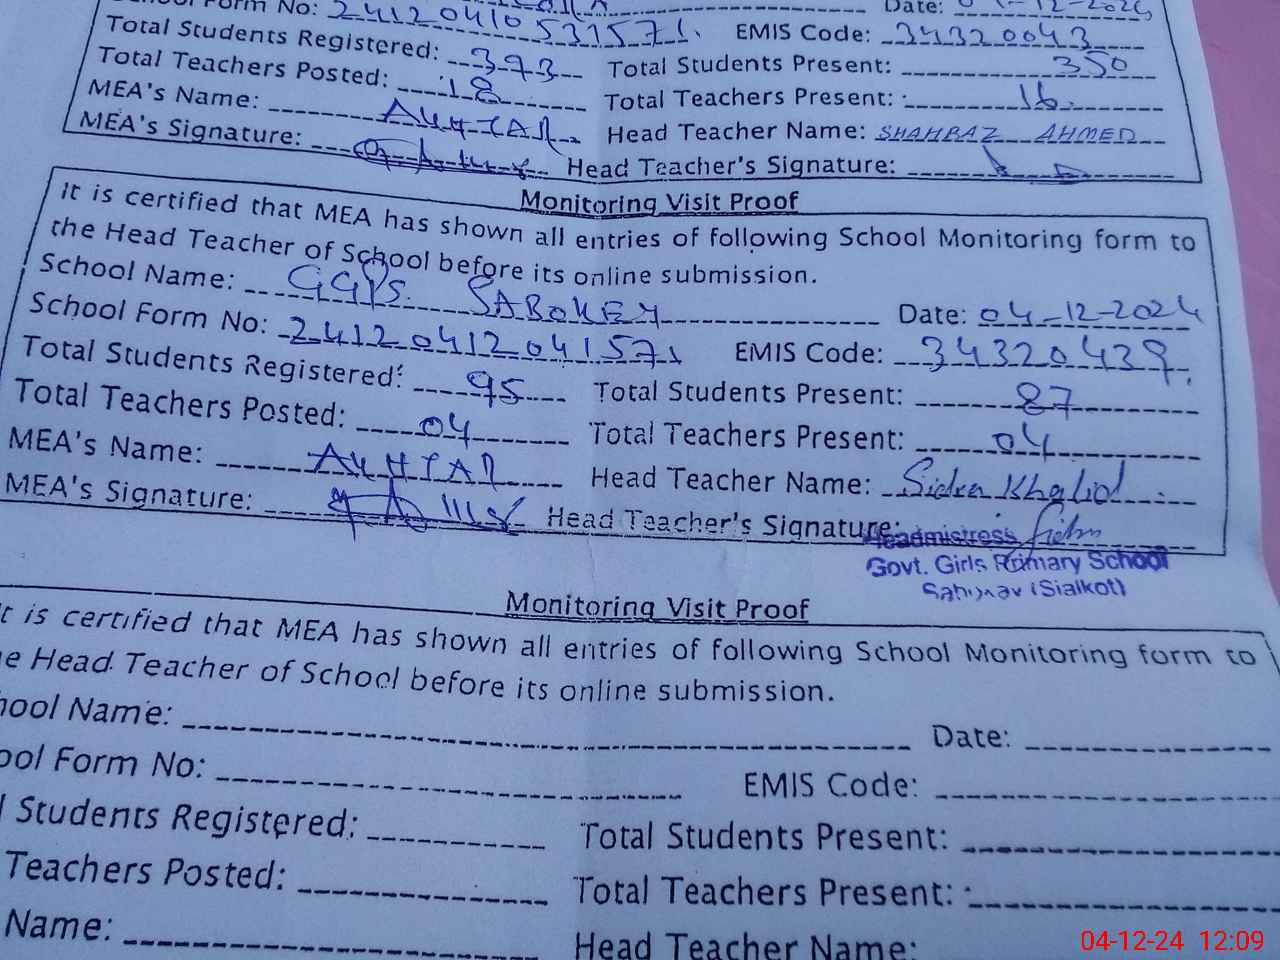 School Form No: 24120410531571. Date: -12-2024
Total Students Registered: 393 EMIS Code: 34320043
Total Teachers Posted: 18 Total Students Present: 350
MEA's Name: AKHTAR Total Teachers Present: 16.
MEA's Signature: Head Teacher Name: SHAHBAZ AHMED
Head Teacher's Signature:
Monitoring Visit Proof
It is certified that MEA has shown all entries of following School Monitoring form to
the Head Teacher of School before its online submission.
School Name: GGPS. SABOKEY Date: 04-12-2024
School Form No: 24120412041571 EMIS Code: 34320439.
Total Students Registered: 95 Total Students Present: 87
Total Teachers Posted: 04 Total Teachers Present: 04
MEA's Name: AKHTAR Head Teacher Name: Sidra Khalid
MEA's Signature: Head Teacher's Signature:
Headmistress
Govt. Girls Primary School
(Sialkot)
Monitoring Visit Proof
It is certified that MEA has shown all entries of following School Monitoring form to
e Head Teacher of School before its online submission.
hool Name: Date:
ool Form No: EMIS Code:
l Students Registered: Total Students Present:
Teachers Posted: Total Teachers Present:
Name: Head Teacher Name:
04-12-24 12:09